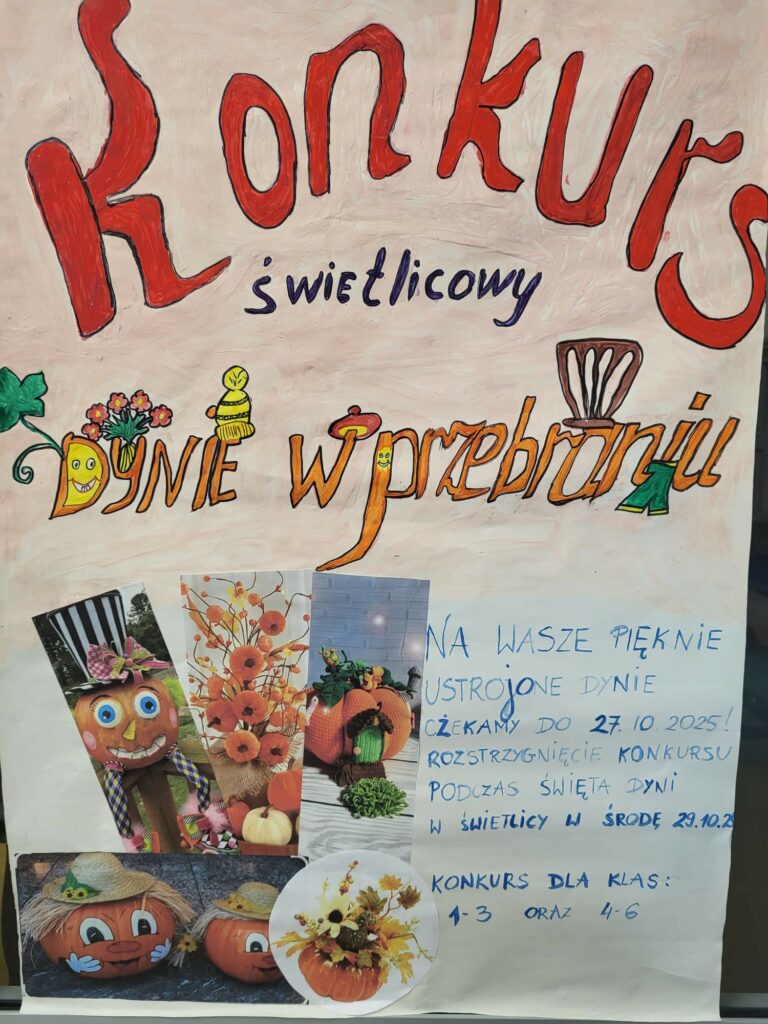 Konkurs
świetlicowy
DYNIE w przebraniu
NA WASZE PIĘKNIE
USTROJONE DYNIE
CZEKAMY DO 27.10.2025!
ROZSTRZYGNIĘCIE KONKURSU
PODCZAS ŚWIĘTA DYNI
W ŚWIETLICY W ŚRODĘ 29.10.2
KONKURS DLA KLAS:
1-3 ORAZ 4-6